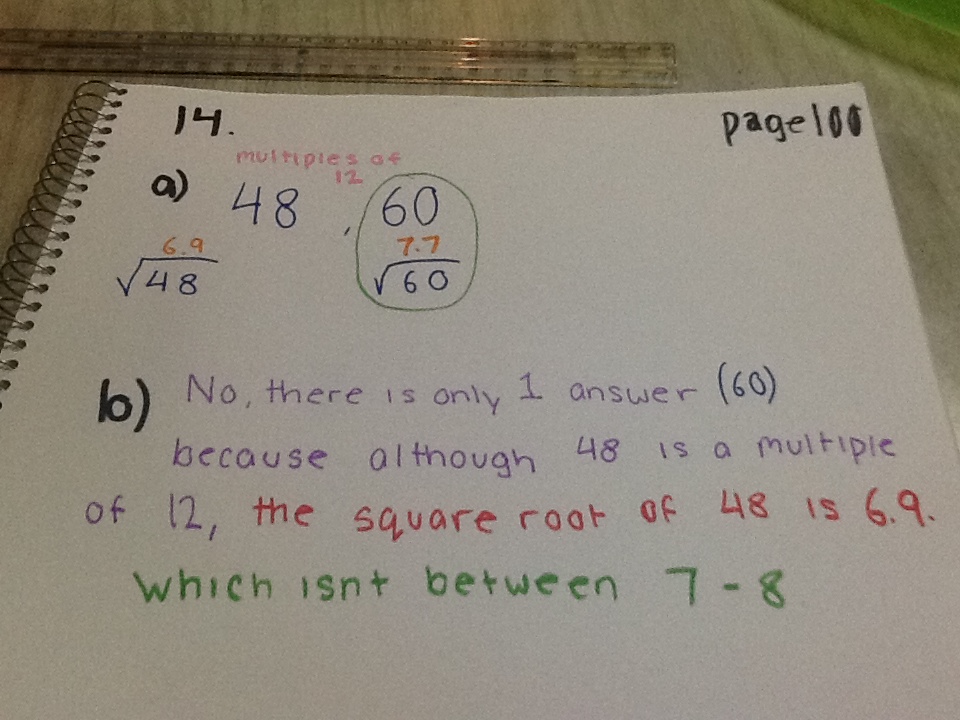 14.
page 100
multiples of
12
a) 48 , 60
6.9 7.7
√48 √60
b) No, there is only 1 answer (60)
because although 48 is a multiple
of 12, the square root of 48 is 6.9.
which isnt between 7-8.